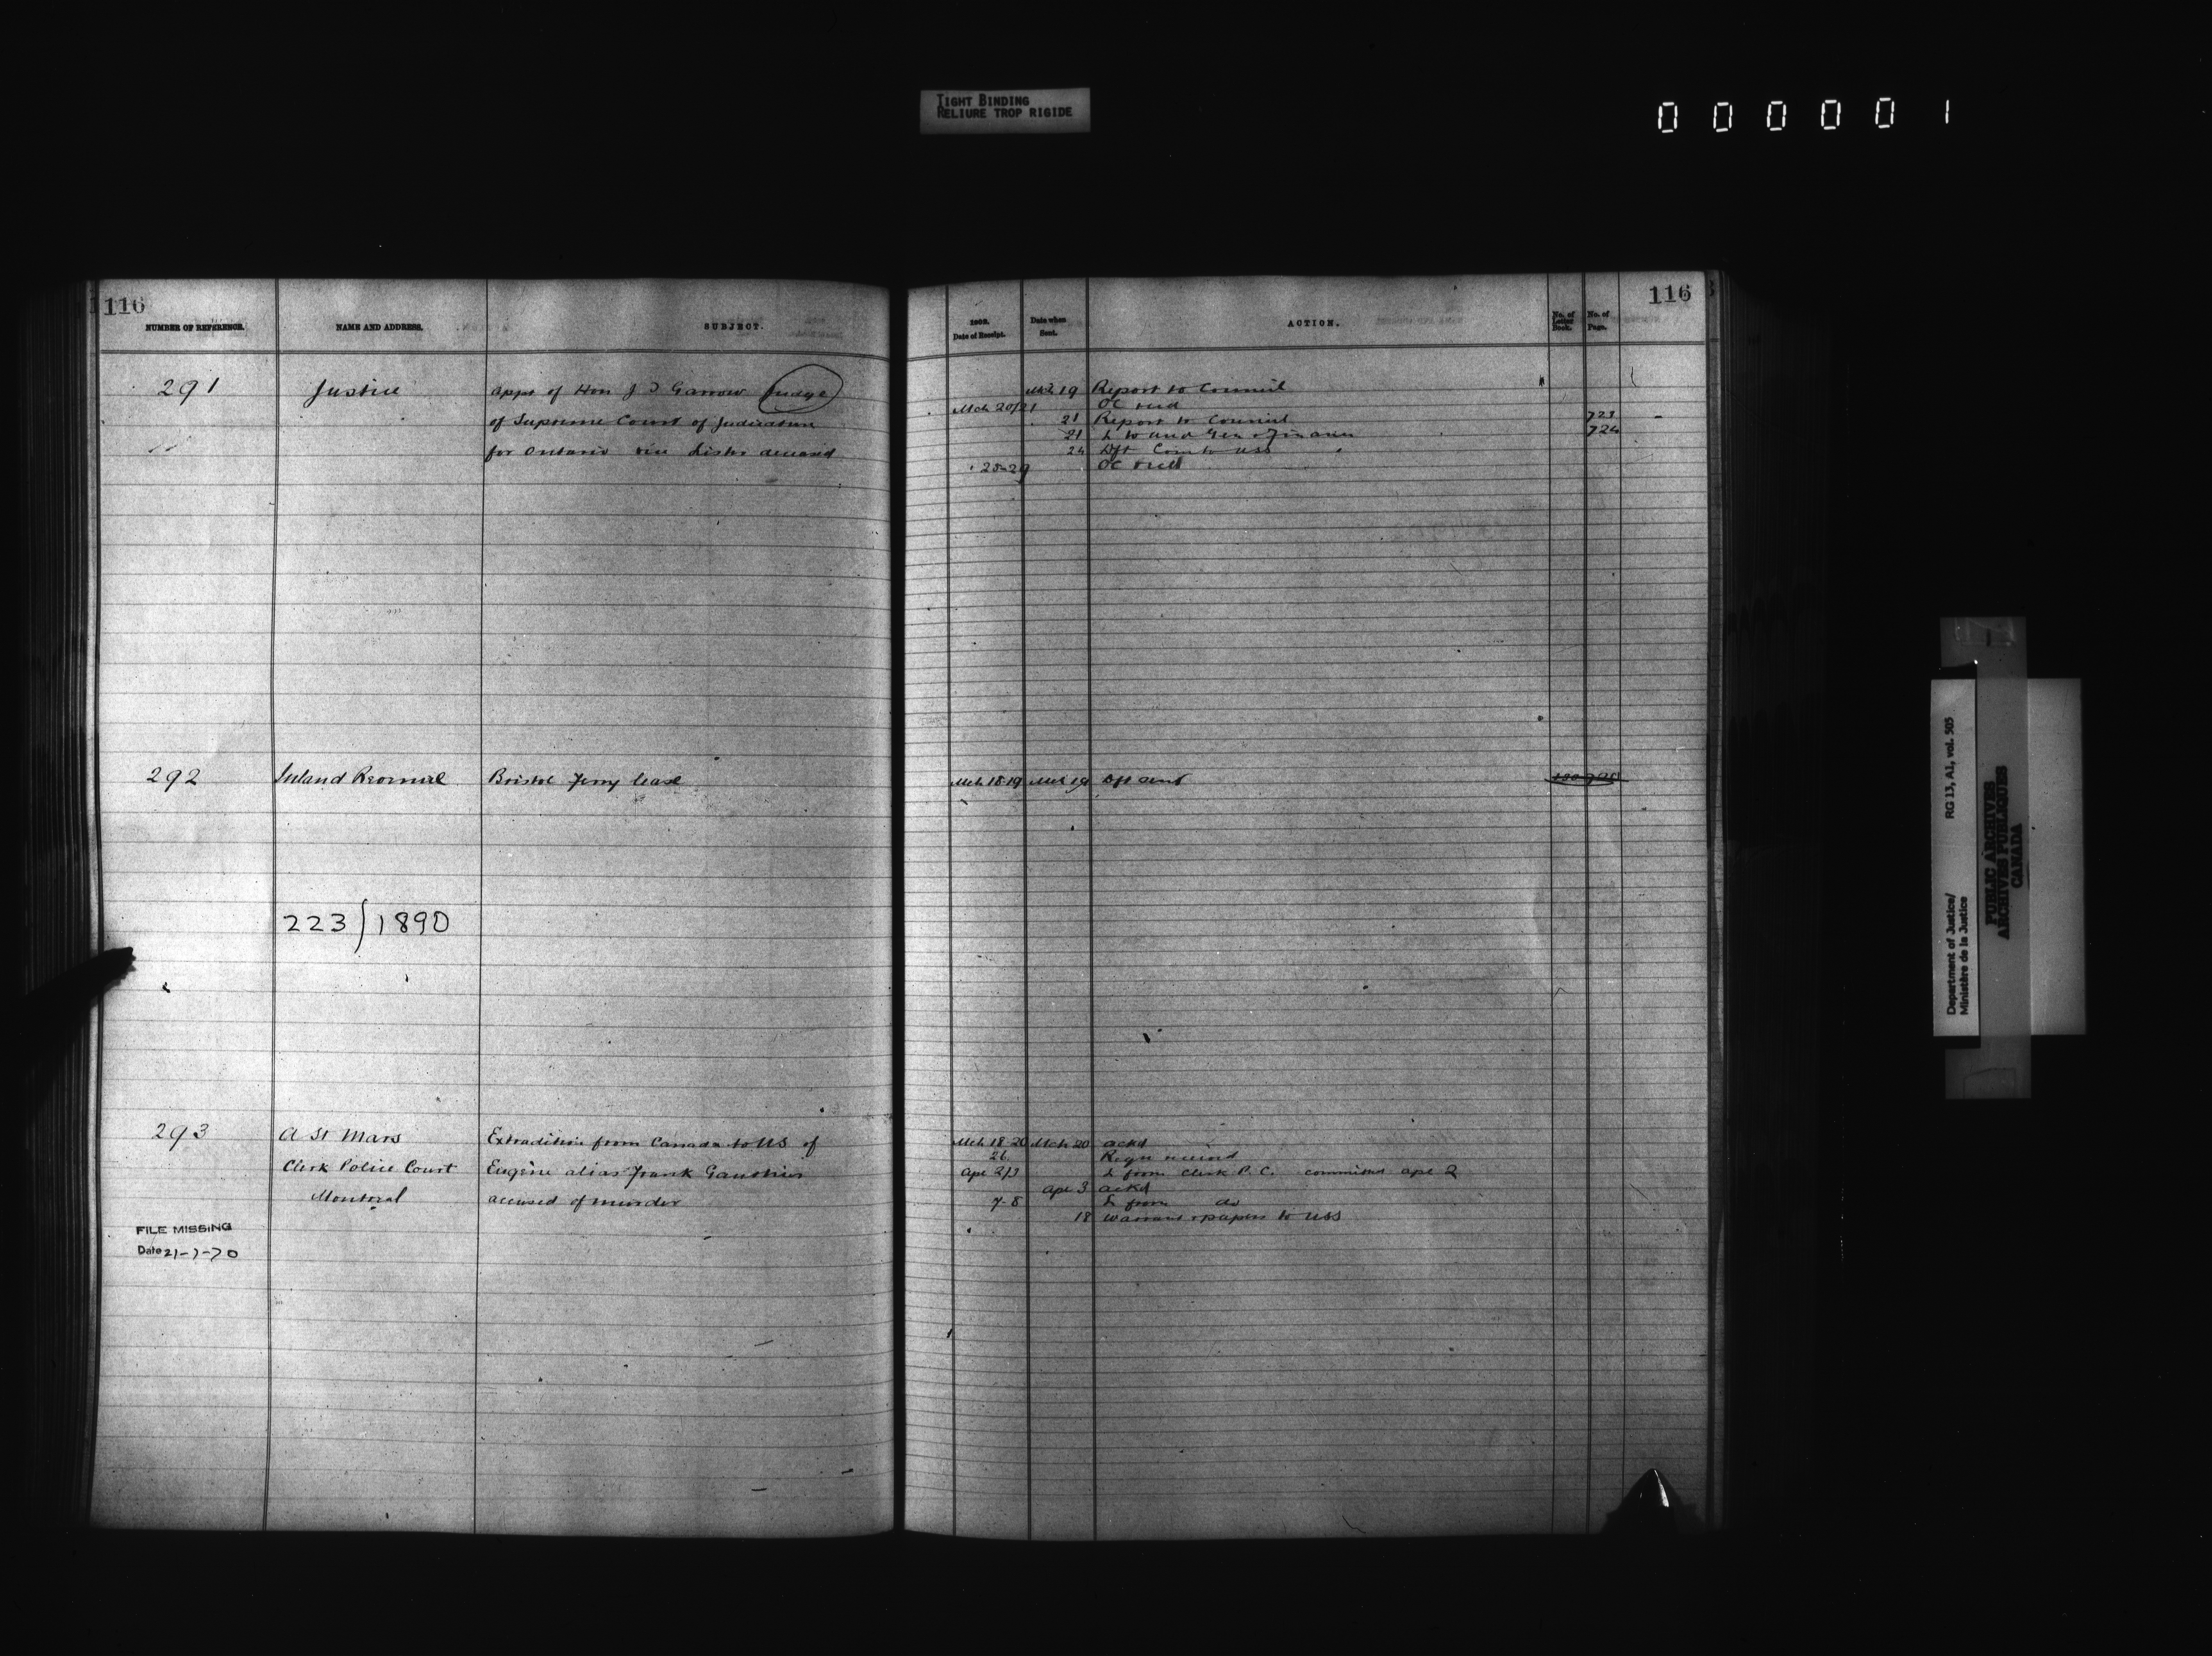 TIGHT BINDING
RELIURE TROP RIGIDE
000001
116
NUMBER OF REFERENCE.
NAME AND ADDRESS.
SUBJECT.
291
Justice
Appt of Hon J T Garrow Judge
of Supreme Court of Judicature
for Ontario vice Lister deceased
292
Inland Revenue
Bristol Ferry lease
223/1890
293
A St Mars
Clerk Police Court
Montreal
Extradition from Canada to US of
Eugène alias Frank Gauthier
accused of murder
FILE MISSING
Date 21-7-70
116
1902.
Date of Receipt.
Date when
Sent.
ACTION.
No. of
Letter
Book.
No. of
Page.
Mch 19 Report to Council
Mch 20/21 OC recd
21 Report to Council 723
21 L to Aud Gen & Finance 724
24 Dft Com to USS
25-29 OC recd
Mch 18-19 Mch 19 Dft sent
Mch 18-20 Mch 20 ackd
26 received
Apl 2/3 L from Clerk P. C. committed apl 2
Apl 3 ackd
7-8 L from do
18 Warrant & papers to USS
Department of Justice/
Ministère de la Justice
RG 13, A1, vol. 505
PUBLIC ARCHIVES
ARCHIVES PUBLIQUES
CANADA